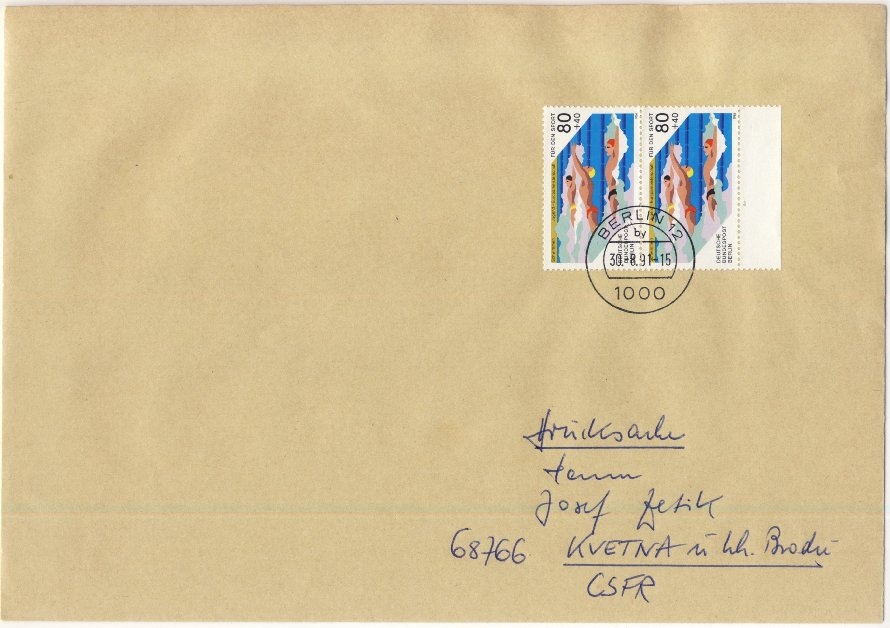 80 +40 FÜR DEN SPORT
80 +40 FÜR DEN SPORT
DEUTSCHE BUNDESPOST BERLIN
DEUTSCHE BUNDESPOST BERLIN
BERLIN 12
by
30.-8.91-15
1000
Drucksache
Herrn
Josef
68766 KVETNA u Uh. Brodu
CSFR